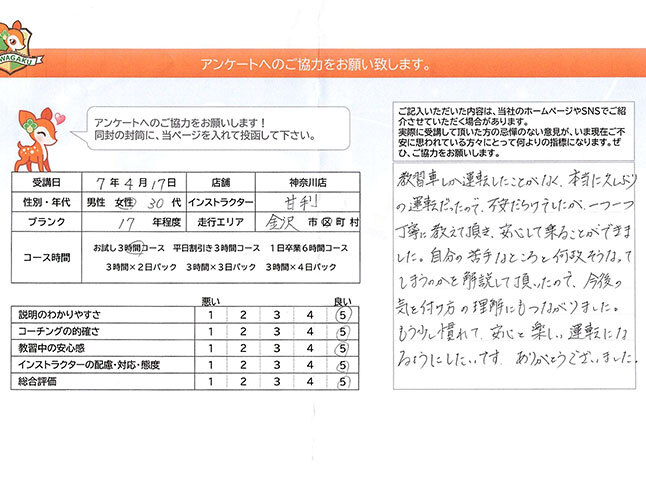 WAGAKU
アンケートへのご協力をお願い致します。
アンケートへのご協力をお願いします！
同封の封筒に、当ページを入れて投函して下さい。
受講日 7年4月17日 店舗 神奈川店
性別・年代 男性 女性 30代 インストラクター 甘利
ブランク 17年程度 走行エリア 金沢 市区町村
コース時間 お試し3時間コース 平日割引き3時間コース 1日卒業6時間コース
3時間×2日パック 3時間×3日パック 3時間×4日パック
悪い 良い
説明のわかりやすさ 1 2 3 4 5
コーチングの的確さ 1 2 3 4 5
教習中の安心感 1 2 3 4 5
インストラクターの配慮・対応・態度 1 2 3 4 5
総合評価 1 2 3 4 5
ご記入いただいた内容は、当社のホームページやSNSでご紹
介させていただく場合があります。
実際に受講して頂いた方の忌憚のない意見が、いま現在ご不
安に思われている方々にとって何よりの指標になります。ぜ
ひ、ご協力をお願いします。
教習車しか運転したことがなく、本当に久しぶり
の運転だったので、不安だらけでしたが、一つ一つ
丁寧に教えて頂き、安心して乗ることができま
した。自分の苦手なところと何故そうなって
しまうのかを解説して頂いたので、今後の
気を付け方の理解にもつながりました。
もう少し慣れて、安心と楽しい運転にな
るようにしたいです。ありがとうございました。